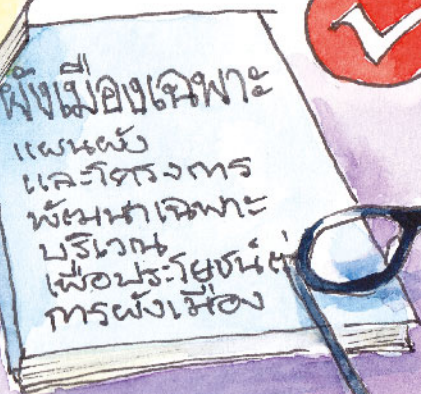 ผังเมืองเฉพาะ
แผนผัง
และโครงการ
พัฒนาเฉพาะ
บริเวณ
เพื่อประโยชน์ต่
การผังเมือง